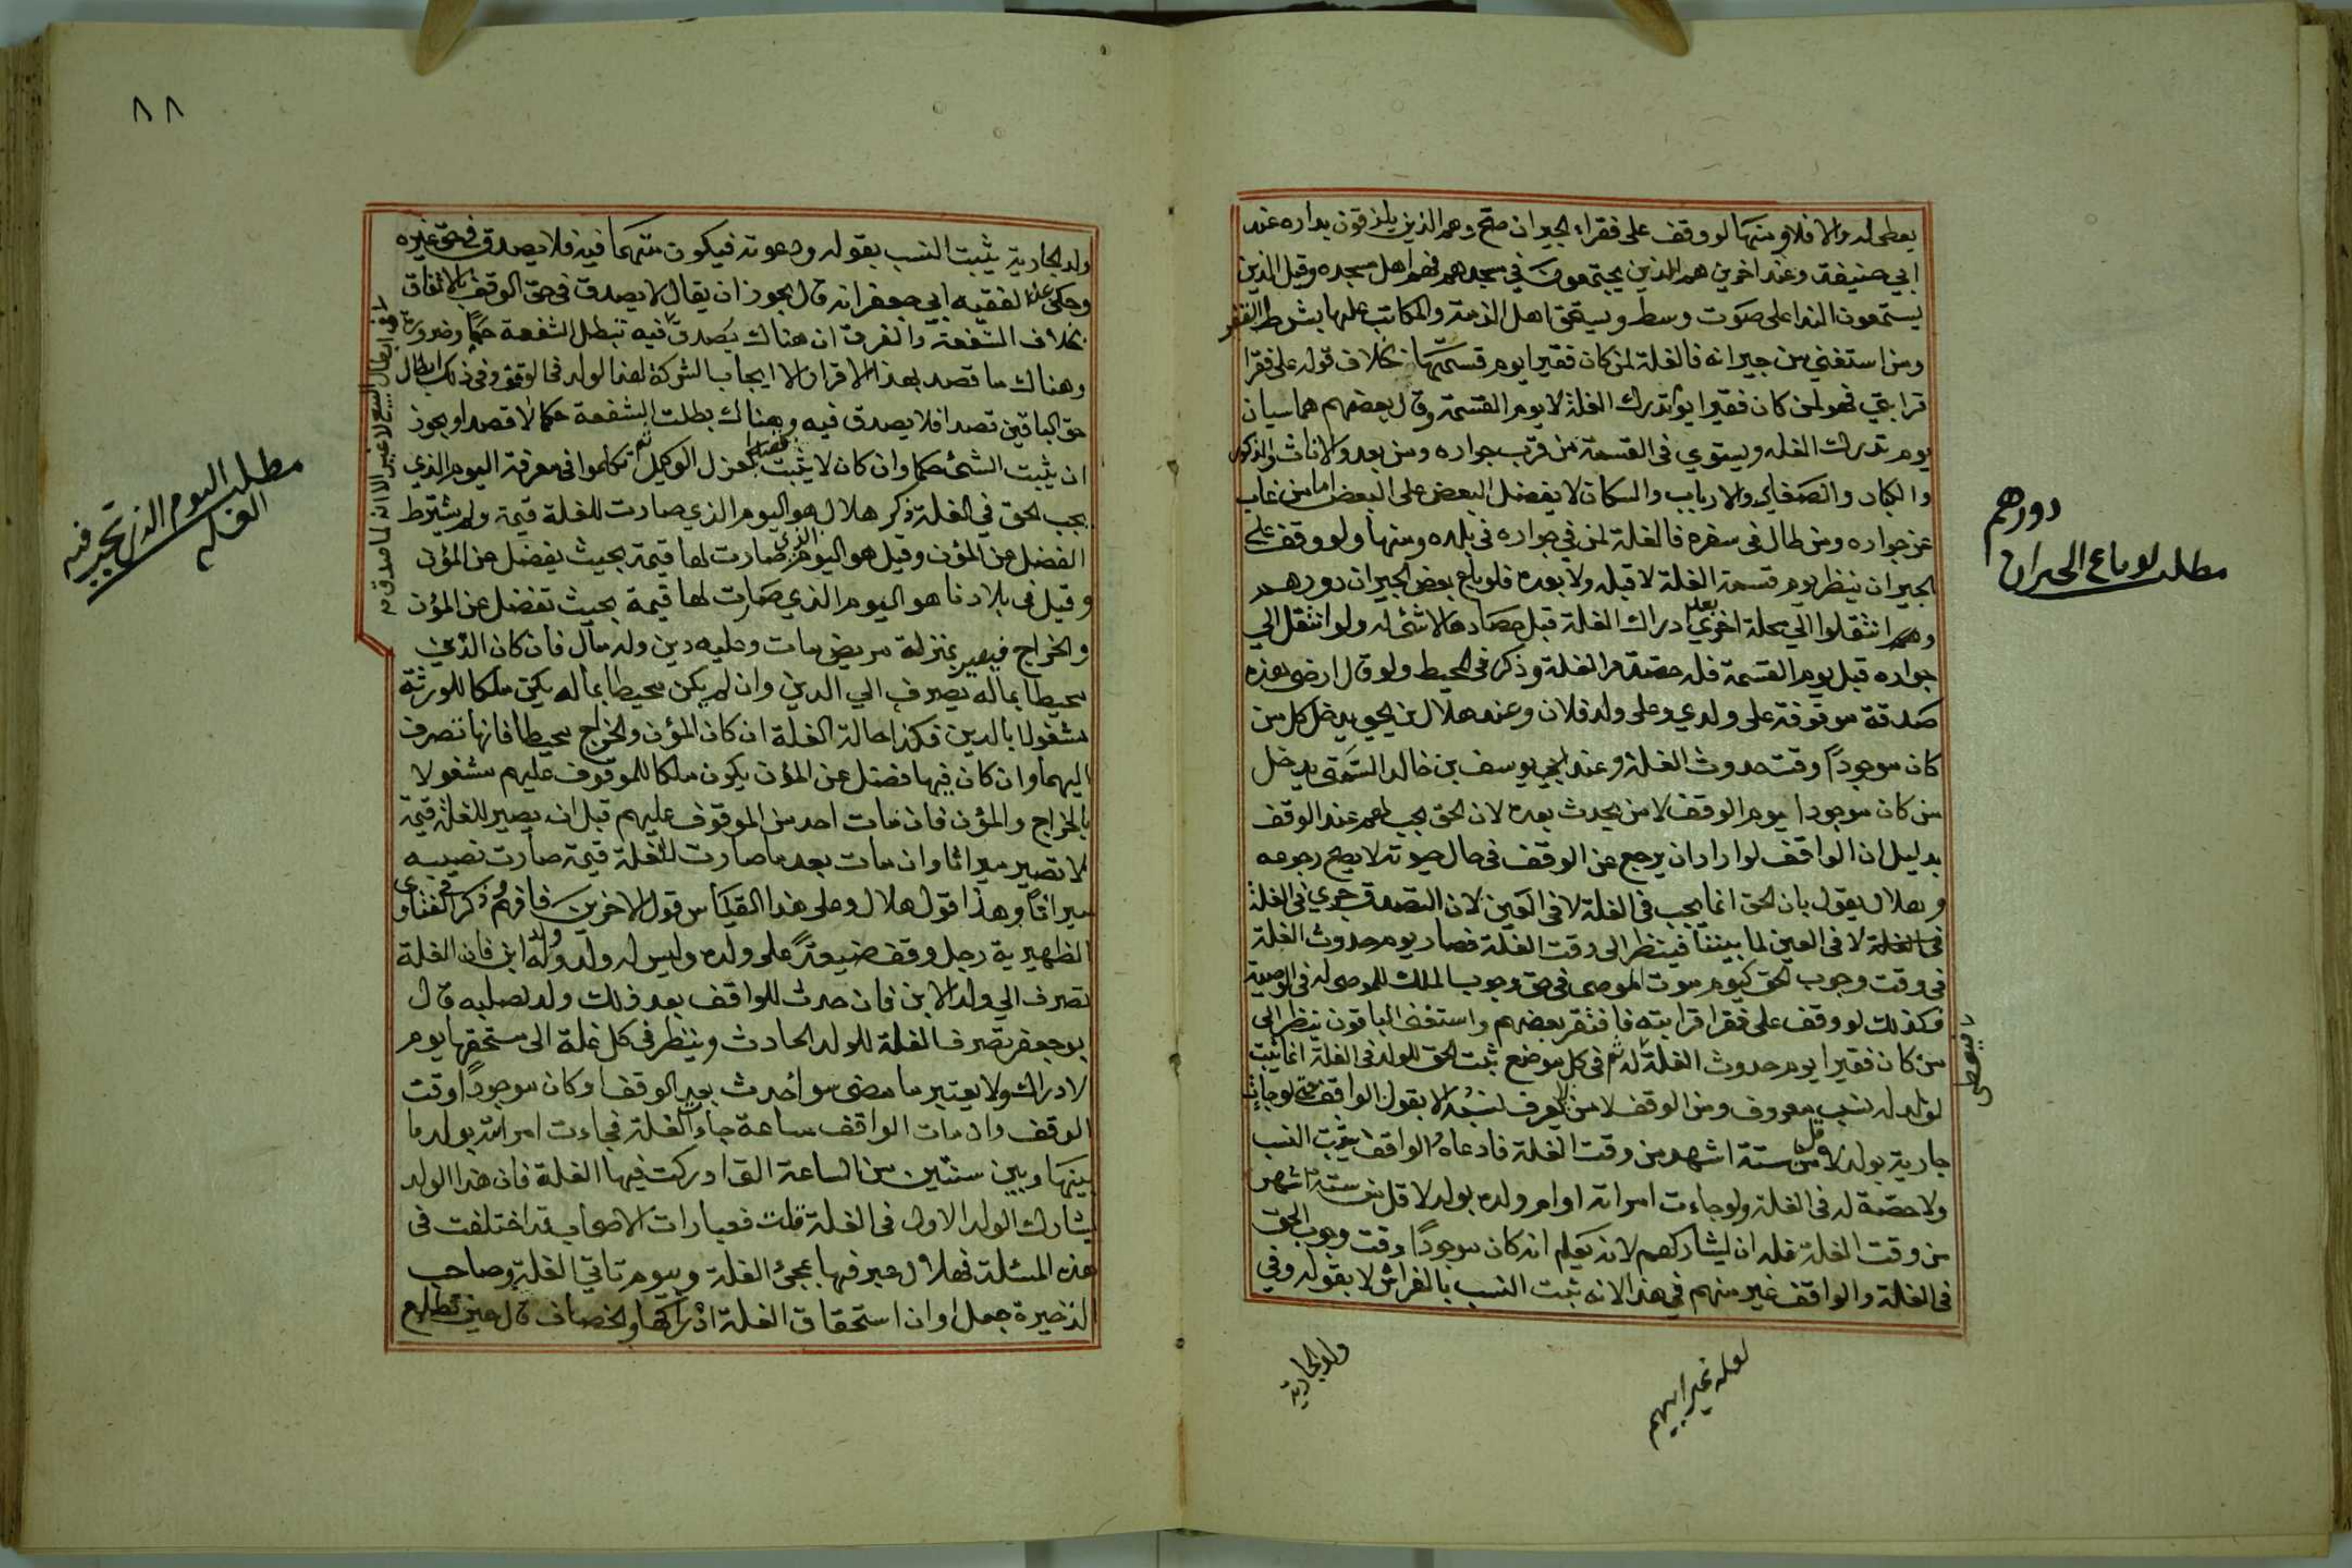 يعطى له والا فلا ومنها لو وقف على فقراء الجيران صح وهم الذين يلزقون بداره عند
ابي حنيفة وعند اخرين هم الذين يجتمعون في مسجدهم فهم اهل مسجده وقيل الذين
يستمعون الندا على صوت وسط ويستحق اهل الذمة والمكاتب عليها بشرط الفقر
ومن استغنى من جيرانه فالغلة لمن كان فقيرا يوم قسمتها بخلاف قوله على فقرا
قرابتي فهو لمن كان فقيرا يوم تدرك الغلة لا يوم القسمة وقال بعضهم هما سيان
يوم تدرك الغله ويستوي فى القسمة من قرب جواره ومن بعد والاناث والذكور
والكبار والصغار والارباب والسكان لا يفضل البعض على البعض اما من غاب
عن جواره ومن طال فى سفره فالغلة لمن في جواره فى بلده ومنها ولو وقف على
الجيران ينظر يوم قسمة الغلة لا قبله ولا بعده فلو باع بعض الجيران دورهم
وهم انتقلوا الي محلة اخري بعد ادراك الغلة قبل حصادها لا شئ له ولو انتقل الي
جواره قبل يوم القسمة فله حصة من الغلة وذكر فى المحيط ولو قال ارضى هذه
صدقة موقوفة على ولدي وعلى ولد فلان وعند هلال بن يحيى يدخل كل من
كان موجوداً وقت حدوث الغلة وعند ابي يوسف بن خالد السمتى يدخل
من كان موجودا يوم الوقف لا من يحدث بعده لان الحق يجب لهم عند الوقف
بدليل ان الواقف لو اراد ان يرجع عن الوقف فى حال حيوته لا يصح رجوعه
وهلال يقول بان الحق انما يجب فى الغلة لا فى العين لان التصدق جري فى الغلة
فى الغلة لا فى العين لما بيننا فينظر الى وقت الغلة فصار يوم حدوث الغلة
فى وقت وجوب الحق كيوم موت الموصى فى حق وجوب الملك للموصى له فى الوصية
فكذلك لو وقف على فقرا قرابته فافتقر بعضهم واستغنى الباقون ينظر الى
من كان فقيرا يوم حدوث الغلة له ثم فى كل موضع ثبت الحق للولد فى الغلة انما يثبت
لولد له نسب معروف ومن الوقف لا من لا يعرف نسبه الا بقول الواقف حتى لو جاءت
جارية بولد لاقل من ستة اشهر من وقت الغلة فادعاه الواقف يثبت النسب
ولا حصة له فى الغلة ولو جاءت امراته او ام ولده بولد لاقل من ستة اشهر
من وقت الغلة فله ان يشاركهم لانه يعلم انه كان موجوداً وقت وجوب الحق
فى الغلة والواقف غير متهم في هذا لانه ثبت النسب بالفراش لا بقوله وفي
ولد الجارية
دورهم
مطلب لو باع الجيران
٨٨
ولد الجارية يثبت النسب بقوله ودعوته فيكون متهما فيه فلا يصدق فى حق غيره
وحكى عن الفقيه ابي جعفر انه قال يجوز ان يقال لا يصدق فى حق الوقف بالاتفاق
بخلاف الشفعة والفرق ان هناك يصدق فيه تبطل الشفعة حكما وضرورة
وهناك ما قصد بهذا الاقرار الا ايجاب الشركة لهذا الولد فى الوقف وفى ذلك ابطال
حق الباقين قصدا فلا يصدق فيه وهناك بطلت الشفعة حكما لا قصدا ويجوز
ان يثبت الشئ حكما وان كان لا يثبت قصدا كعزل الوكيل ثم تكلموا فى معرفة اليوم الذي
يجب الحق في الغلة ذكر هلال هو اليوم الذي صارت للغلة قيمة ولم يشترط
الفضل عن المؤن وقيل هو اليوم الذي صارت لها قيمة بحيث يفضل عن المؤن
وقيل فى بلادنا هو اليوم الذي صارت لها قيمة بحيث تفضل عن المؤن
والخراج فيصير بمنزلة مريض مات وعليه دين وله مال فان كان الدين
محيطا بماله يصرف الي الدين وان لم يكن محيطا بماله يكون ملكا للورثة
مشغولا بالدين فكذا حالة الغلة ان كان المؤن والخراج محيطا فانها تصرف
اليهما وان كان فيها فضل عن المؤن يكون ملكا للموقوف عليهم مشغولا
بالخراج والمؤن فان مات احد من الموقوف عليهم قبل ان يصير للغلة قيمة
لا تصير ميراثا وان مات بعد ما صارت للغلة قيمة صارت نصيبه
ميراثا وهذا قول هلال وعلى هذا القياس قول الاخرين فافهم وذكر فى الفتاوى
الظهيرية رجل وقف ضيعة على ولده وليس له ولد وله ولد ابن فان الغلة
تصرف الي ولد الابن فان حدث للواقف بعد ذلك ولد لصلبه قال
ابو جعفر تصرف الغلة للولد الحادث وينظر فى كل غلة الى مستحقها يوم
الادراك ولا يعتبر ما مضى سوا حدث بعد الوقف او كان موجوداً وقت
الوقف وان مات الواقف ساعة جات الغلة فجاءت امراته بولد ما
بينها وبين سنتين من الساعة التى ادركت فيها الغلة فان هذا الولد
يشارك الولد الاول فى الغلة قلت فعبارات الاصحاب قد اختلفت فى
هذه المسئلة فهلال عبر فيها بمجئ الغلة ويوم تاتي الغلة وصاحب
الذخيرة جعل اوان استحقاق الغلة ادراكها والخصاف قال حين تطلع
مطلب اليوم الذى تجب فيه
الغلة